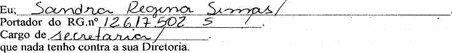 Eu, Sandra Regina Simas/
Portador do RG.nº 126.17502 5.
Cargo de secretaria/
que nada tenho contra a sua Diretoria.